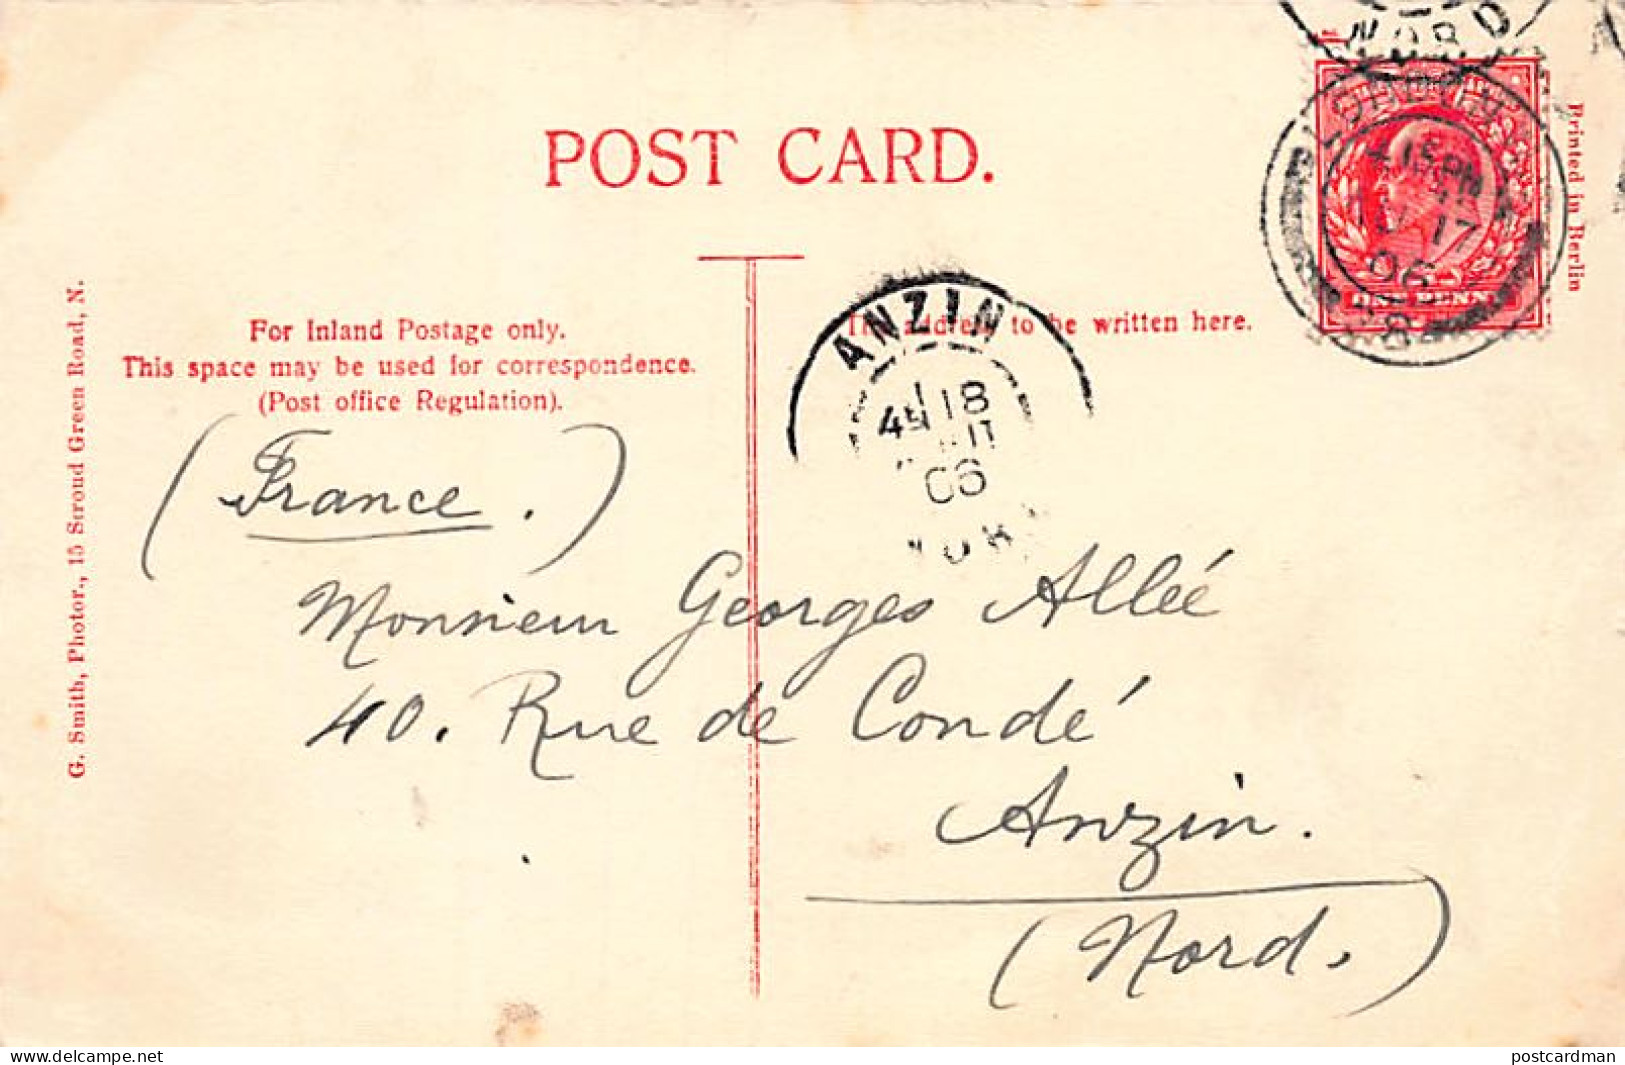 POST CARD.
For Inland Postage only.
This space may be used for correspondence.
(Post office Regulation).
The address to be written here.
G. Smith, Photor., 15 Stroud Green Road, N.
Printed in Berlin
ONE PENNY
17
06
ANZIN
18
06
NORD
(France.)
Monsieur Georges Allée
40. Rue de Condé
Anzin.
(Nord.)
www.delcampe.net
postcardman